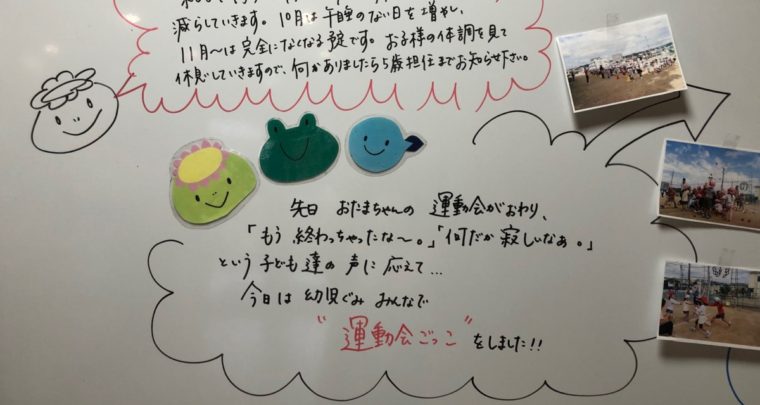 減らしていきます。10月は午睡のない日を増やし、
11月〜は完全になくなる予定です。お子様の体調を見て
休息していきますので、何かありましたら5歳担任までお知らせ下さい。
先日 おたまちゃんの 運動会がおわり、
「もう 終わっちゃったな〜。」「何だか 寂しいなぁ。」
という 子ども達の 声に 応えて…
今日は 幼児ぐみ みんなで
"運動会ごっこ" をしました!!